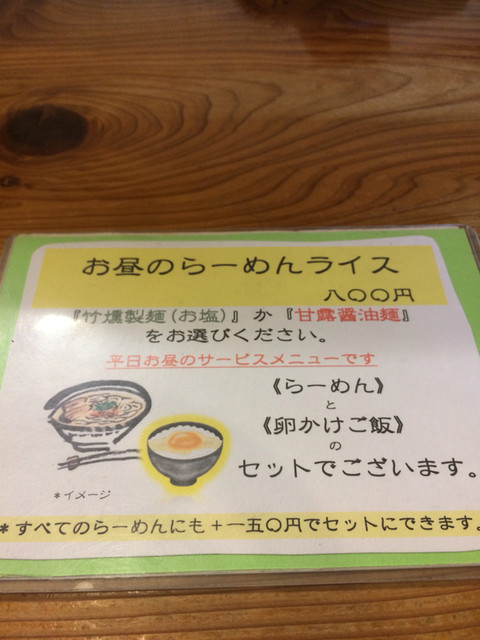 お昼のらーめんライス
八〇〇円
『竹燻製麺(お塩)』か『甘露醤油麺』
をお選びください。
平日お昼のサービスメニューです
《らーめん》
と
《卵かけご飯》
の
セットでございます。
*イメージ
*すべてのらーめんにも+一五〇円でセットにできます。